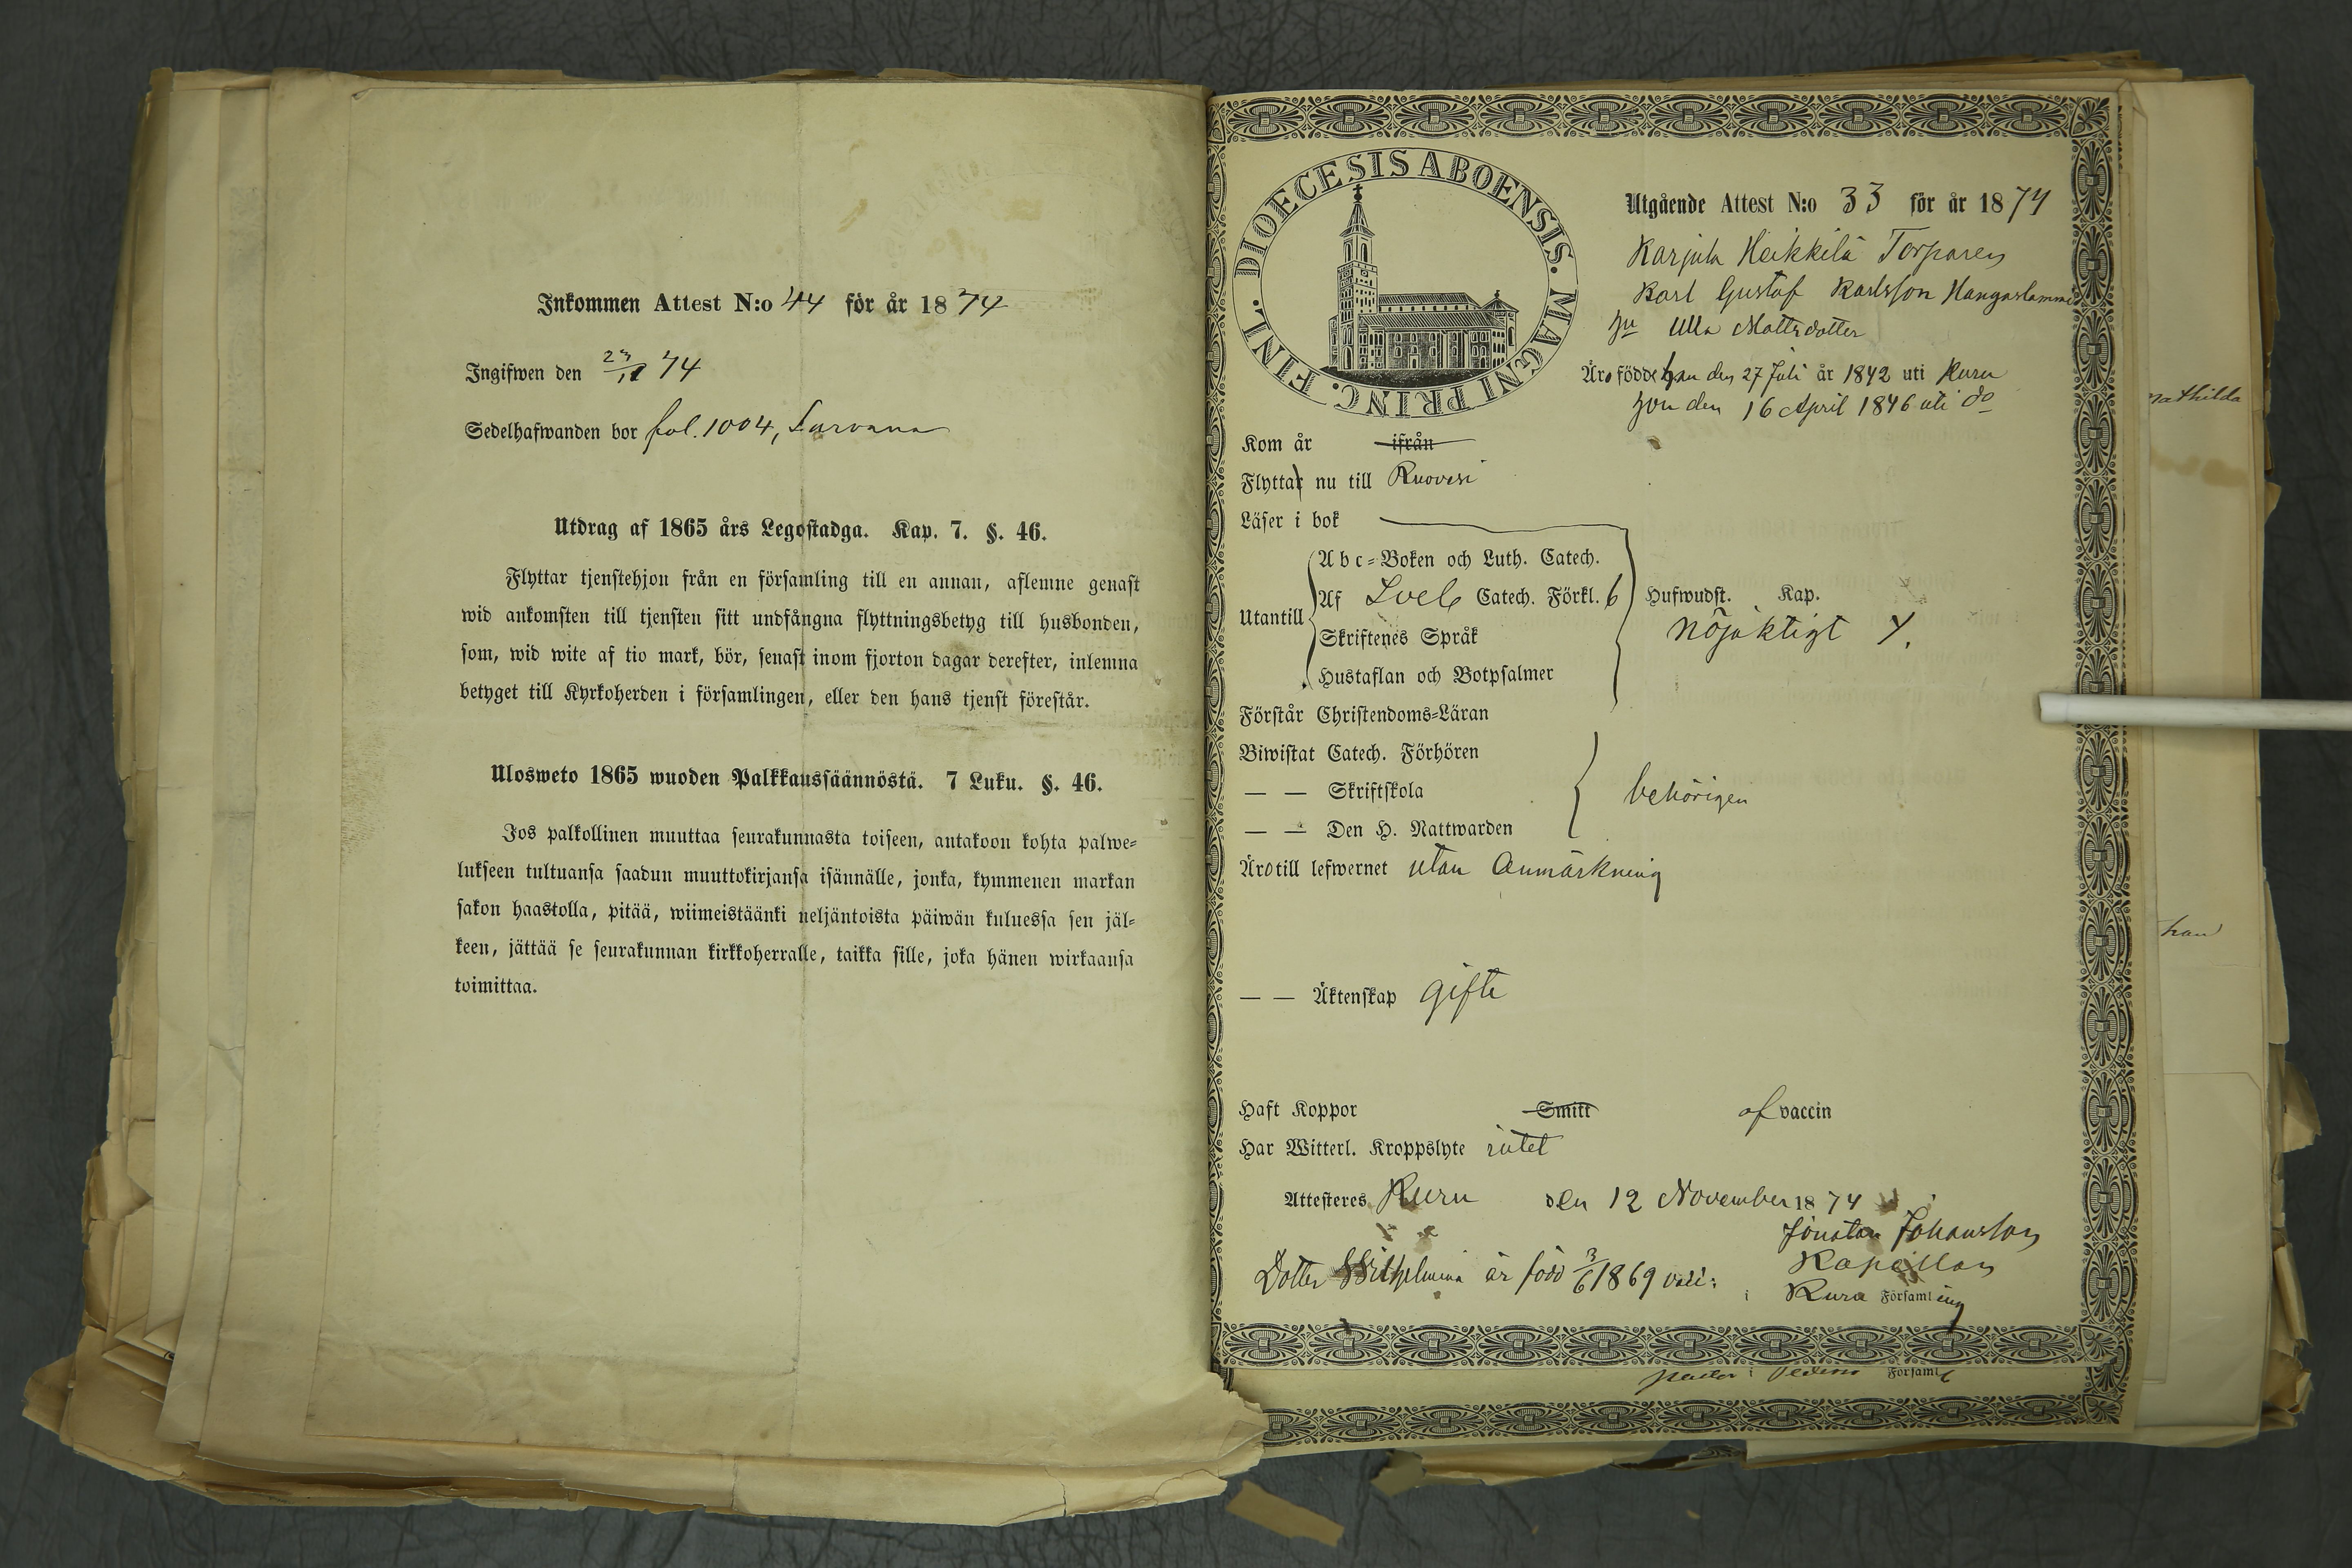 Inkommen Attest N:o 44 för år 1874
Ingifwen den 23/11 74
Sedelhafwanden bor fol. 1004, Survana
Utdrag af 1865 års Legostadga. Kap. 7. §. 46.
Flyttar tjenstehjon från en församling till en annan, aflemne genast
wid ankomsten till tjensten sitt undfångna flyttningsbetyg till husbonden,
som, wid wite af tio mark, bör, senast inom fjorton dagar derefter, inlemna
betyget till Kyrkoherden i församlingen, eller den hans tjenst förestår.
Ulosweto 1865 wuoden Palkkaussäännöstä. 7 Luku. §. 46.
Jos palkollinen muuttaa seurakunnasta toiseen, antakoon kohta palwe-
lukseen tultuansa saadun muuttokirjansa isännälle, jonka, kymmenen markan
sakon haastolla, pitää, wiimeistäänki neljäntoista päiwän kuluessa sen jäl-
keen, jättää se seurakunnan kirkkoherralle, taikka sille, joka hänen wirkaansa
toimittaa.
DIOECESIS ABOENSIS. MAGNI PRINC. FINL.
Utgående Attest N:o 33 för år 1874
Karjula Heikkilä Torparen
Karl Gustaf Karlsson Hangaslammi
hu Ulla Mattsdotter
Äro födde han den 27 Juli år 1842 uti Kuru
hon den 16 April 1846 uti do
Kom år ifrån
Flytta nu till Ruovesi
Läser i bok
Utantill
Abc-Boken och Luth. Catech.
Af Sveb Catech. Förkl. 6 Hufwudst. Kap.
Skriftenes Språk nöjaktigt
Hustaflan och Botpsalmer
Förstår Christendoms-Läran
Biwistat Catech. Förhören
— — Skriftskola behörigen
— — Den H. Nattwarden
Äro till lefwernet utan Anmärkning
— — Äktenskap gifte
Haft Koppor Smitt af vaccin
Har Witterl. Kroppslyte intet
Attesteres Kuru den 12 November 1874
Johansson
Kapellan
i Kuru Församling
Dotter Wilhelmina är född 3/6 1869
i Församl
Mathilda
han